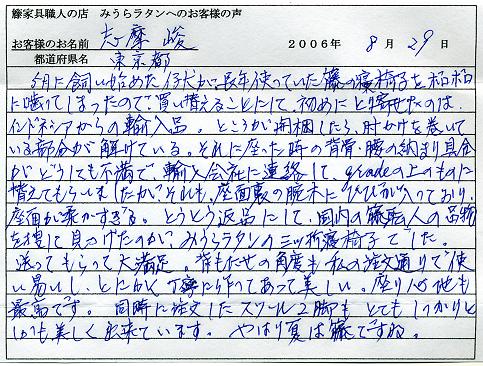 籐家具職人の店 みうらラタンへのお客様の声
お客様のお名前 志摩 峻 2006年 8月 29日
都道府県名 東京都
5月に飼い始めた仔犬が長年使っていた籐の寝椅子をボロボロ
に噛んでしまったので、買い替えることにして、初めにとり寄せたのは
インドネシアからの輸入品。ところが梱梱したら、肘かけを巻いて
いる部分が解けている。それに座った時の背骨・腰の納まり具合
がどうしても不満で、輸入会社に連絡して、gradeの上のものに
替えてもらいましたが、それも、座面裏の腕木にひびが入っており、
座面が柔かすぎる。とうとう返品にして、国内の籐職人の品物
を捜して見つけたのが、みうらラタンの三ツ折寝椅子でした。
送ってもらって大満足。背もたせの角度も私の注文通りで使
い易いし、とにかく丁寧に作ってあって美しい。座り心地も
最高です。同時に注文したスツール2脚も、とてもしっかりと
しかも美しく出来ています。やはり夏は籐ですね。